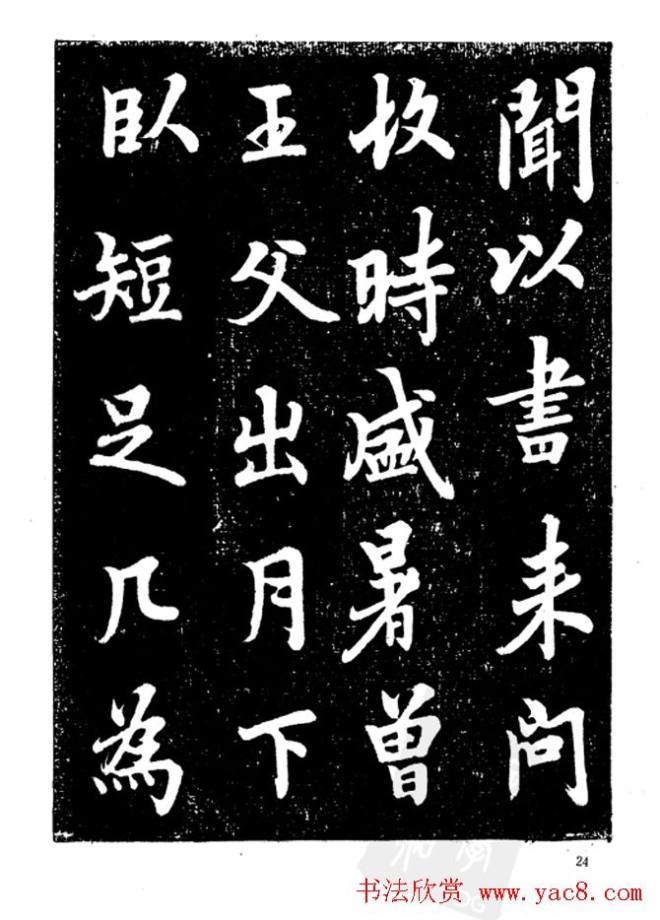 聞以書来問
故時盛暑曾
王父出月下
臥短足几為
24
书法欣赏 www.yac8.com